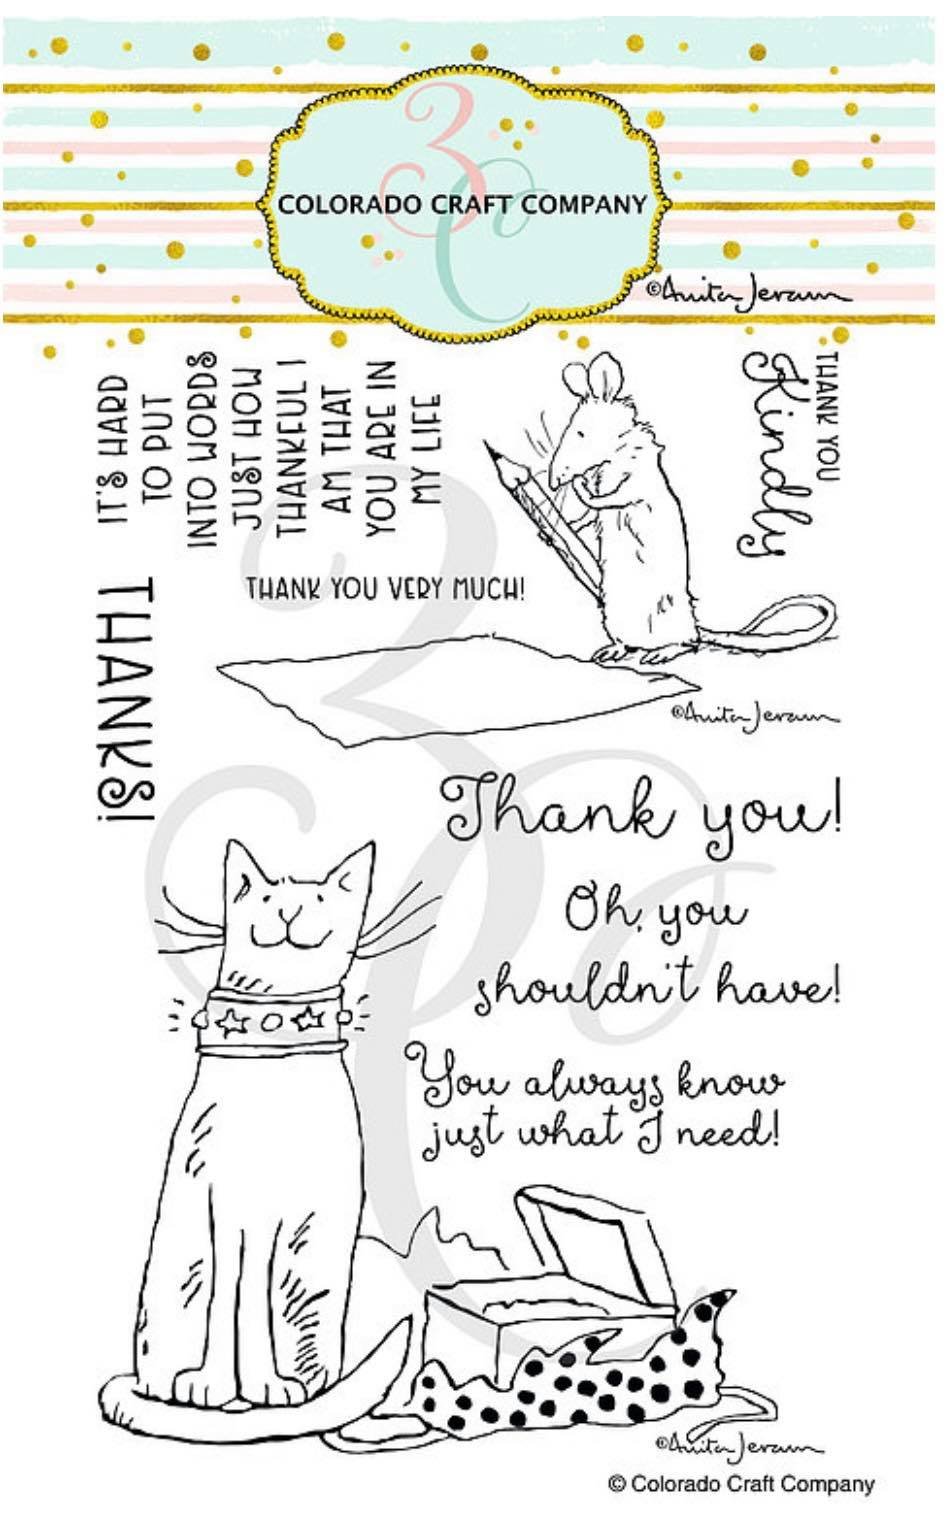 3C
COLORADO CRAFT COMPANY
©Anita Jeram
IT'S HARD
TO PUT
INTO WORDS
JUST HOW
THANKFUL I
AM THAT
YOU ARE IN
MY LIFE
THANK YOU
Kindly
THANK YOU VERY MUCH!
THANKS!
©Anita Jeram
Thank you!
Oh, you
shouldn't have!
You always know
just what I need!
©Anita Jeram
© Colorado Craft Company
3C